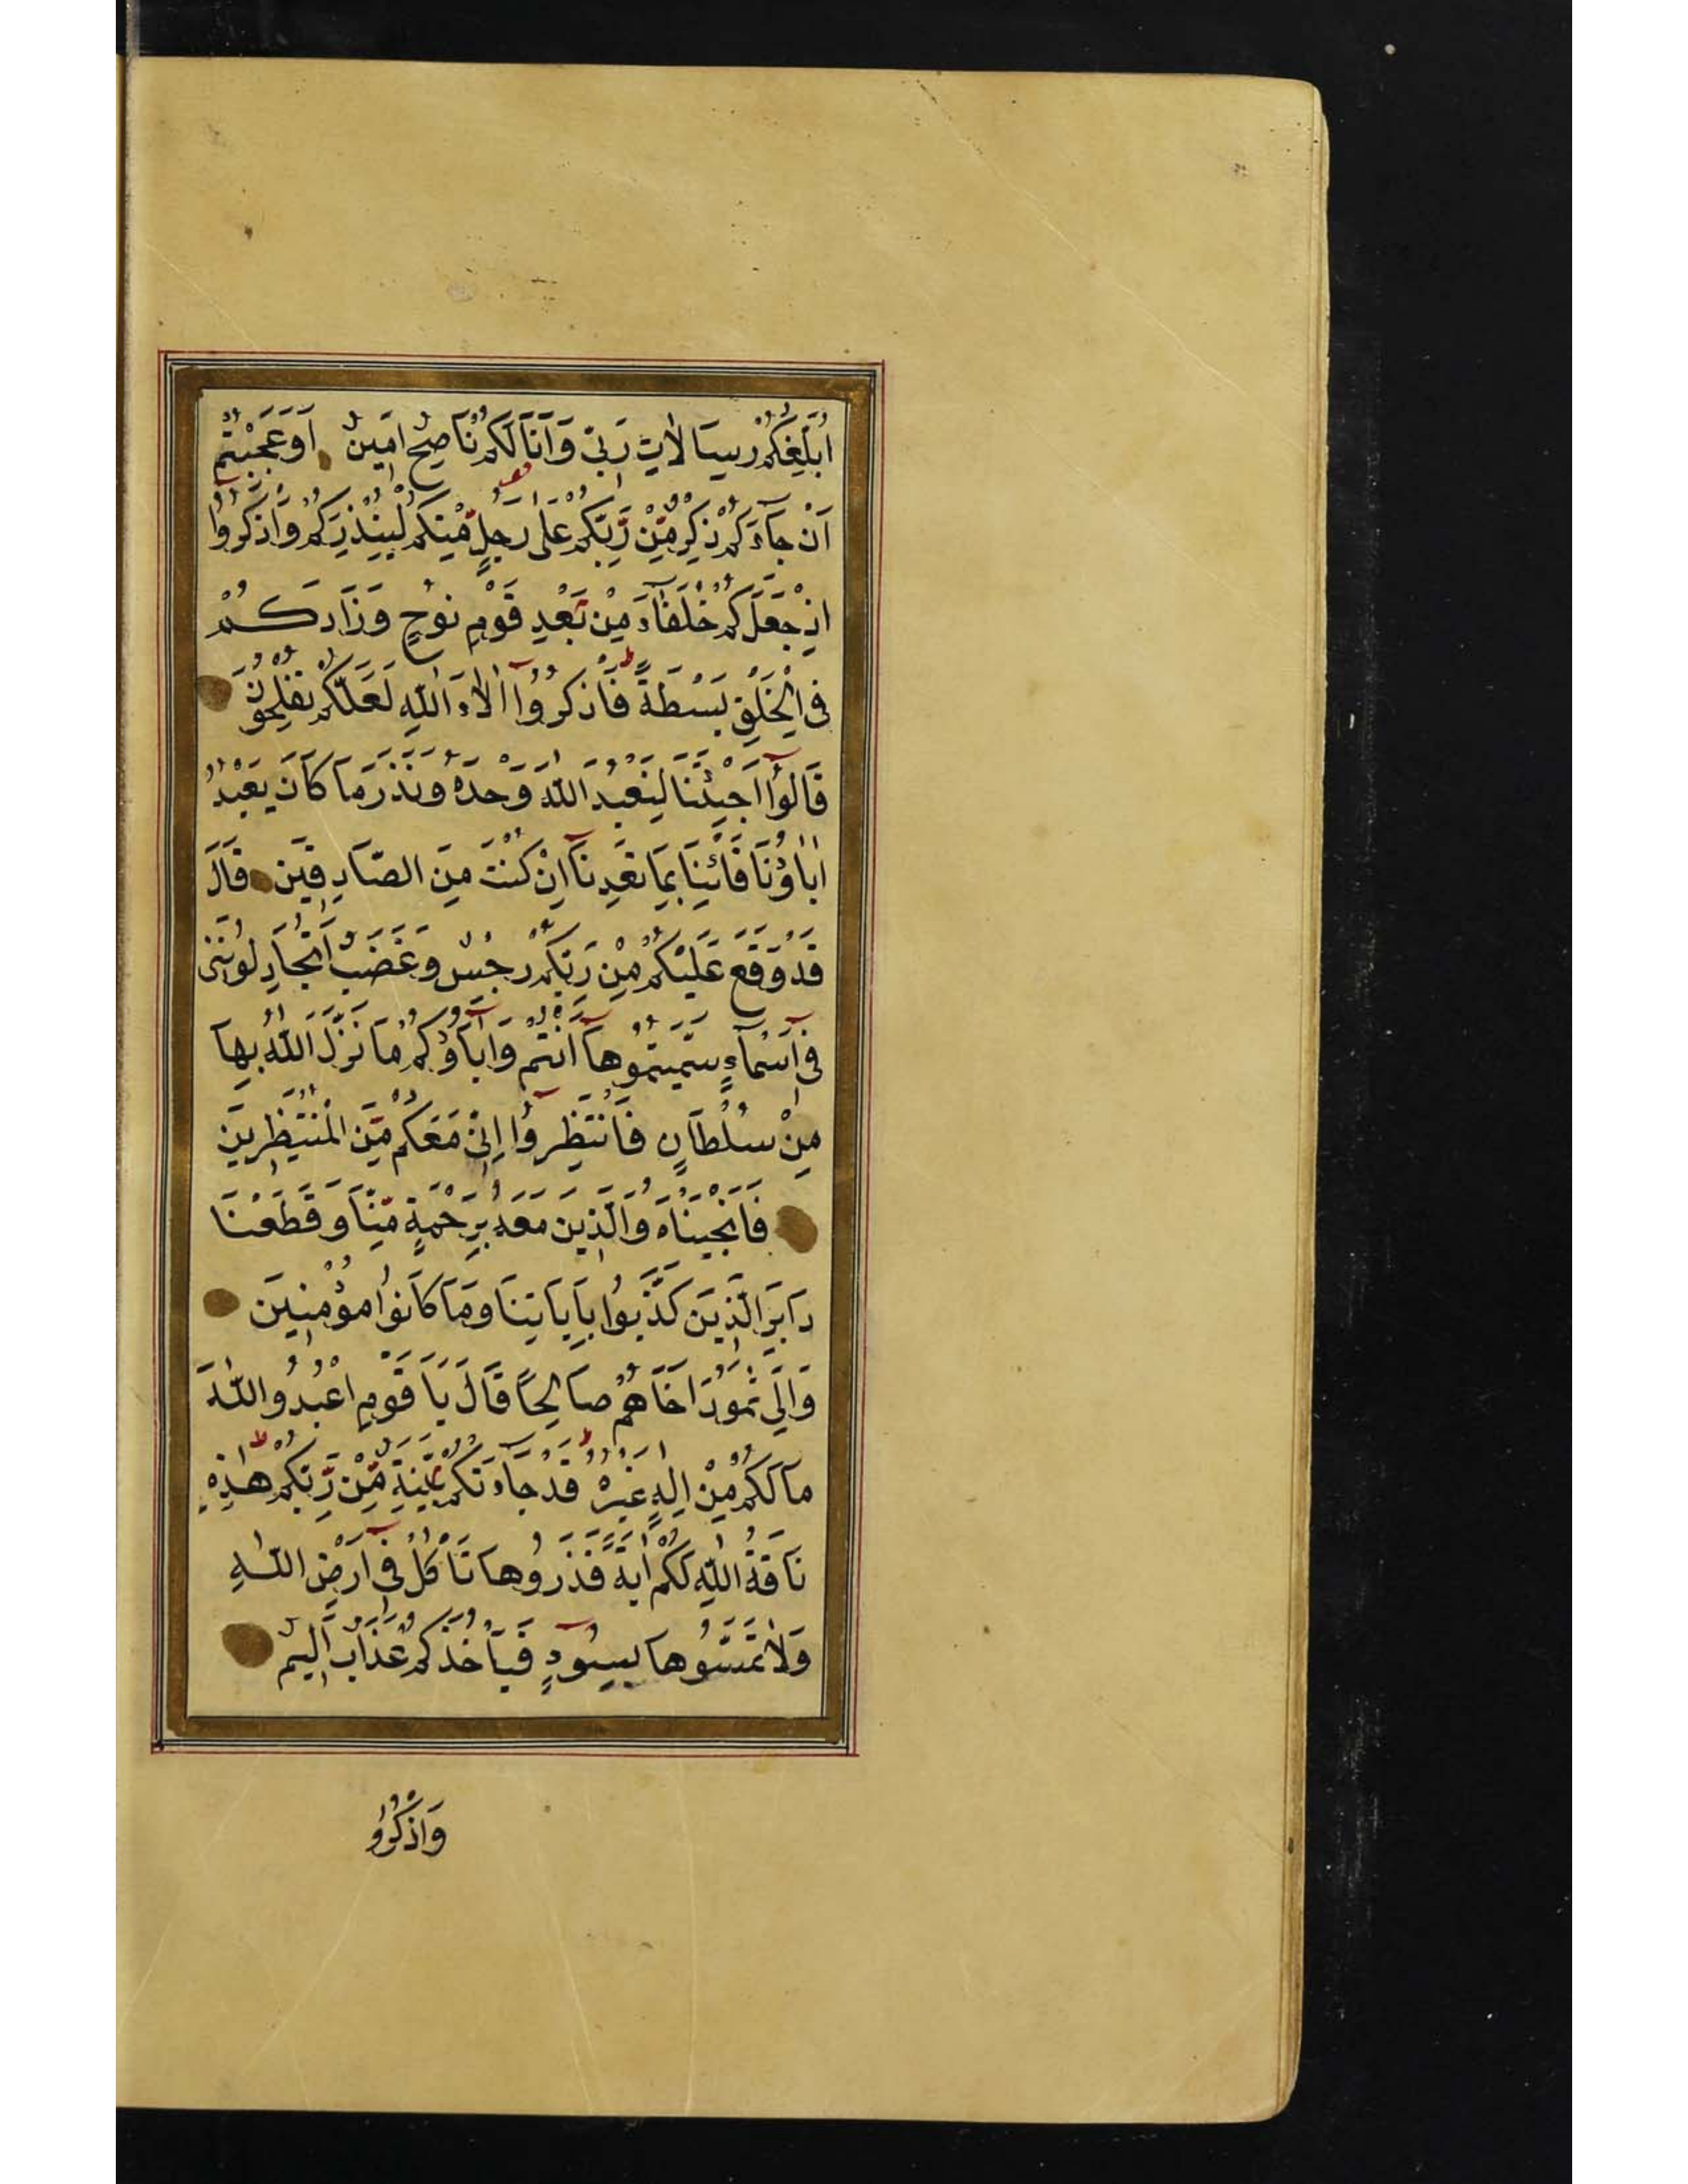 اُبَلِّغُكُمْ رِسَالَاتِ رَبِّي وَاَنَا لَكُمْ نَاصِحٌ اَمِينٌ اَوَعَجِبْتُمْ
اَنْ جَآءَكُمْ ذِكْرٌ مِّنْ رَّبِّكُمْ عَلٰى رَجُلٍ مِّنْكُمْ لِيُنْذِرَكُمْ وَاذْكُرُوٓا
اِذْ جَعَلَكُمْ خُلَفَآءَ مِنْ بَعْدِ قَوْمِ نُوحٍ وَزَادَكُمْ
فِي الْخَلْقِ بَسْطَةً فَاذْكُرُوٓا اٰلَآءَ اللّٰهِ لَعَلَّكُمْ تُفْلِحُونَ
قَالُوٓا اَجِئْتَنَا لِنَعْبُدَ اللّٰهَ وَحْدَهُ وَنَذَرَ مَا كَانَ يَعْبُدُ
اٰبَاؤُنَا فَأْتِنَا بِمَا تَعِدُنَآ اِنْ كُنْتَ مِنَ الصَّادِقِينَ قَالَ
قَدْ وَقَعَ عَلَيْكُمْ مِنْ رَبِّكُمْ رِجْسٌ وَغَضَبٌ اَتُجَادِلُونَنِي
فِيٓ اَسْمَآءٍ سَمَّيْتُمُوهَآ اَنْتُمْ وَاٰبَآؤُكُمْ مَا نَزَّلَ اللّٰهُ بِهَا
مِنْ سُلْطَانٍ فَانْتَظِرُوٓا اِنِّي مَعَكُمْ مِّنَ الْمُنْتَظِرِينَ
فَاَنْجَيْنَاهُ وَالَّذِينَ مَعَهُ بِرَحْمَةٍ مِّنَّا وَقَطَعْنَا
دَابِرَ الَّذِينَ كَذَّبُوا بِاٰيَاتِنَا وَمَا كَانُوا مُؤْمِنِينَ
وَاِلٰى ثَمُودَ اَخَاهُمْ صَالِحًا قَالَ يَا قَوْمِ اعْبُدُوا اللّٰهَ
مَا لَكُمْ مِنْ اِلٰهٍ غَيْرُهُ قَدْ جَآءَتْكُمْ بَيِّنَةٌ مِّنْ رَّبِّكُمْ هٰذِهِ
نَاقَةُ اللّٰهِ لَكُمْ اٰيَةً فَذَرُوهَا تَأْكُلْ فِيٓ اَرْضِ اللّٰهِ
وَلَا تَمَسُّوهَا بِسُوٓءٍ فَيَأْخُذَكُمْ عَذَابٌ اَلِيمٌ
وَاذْكُرُوا